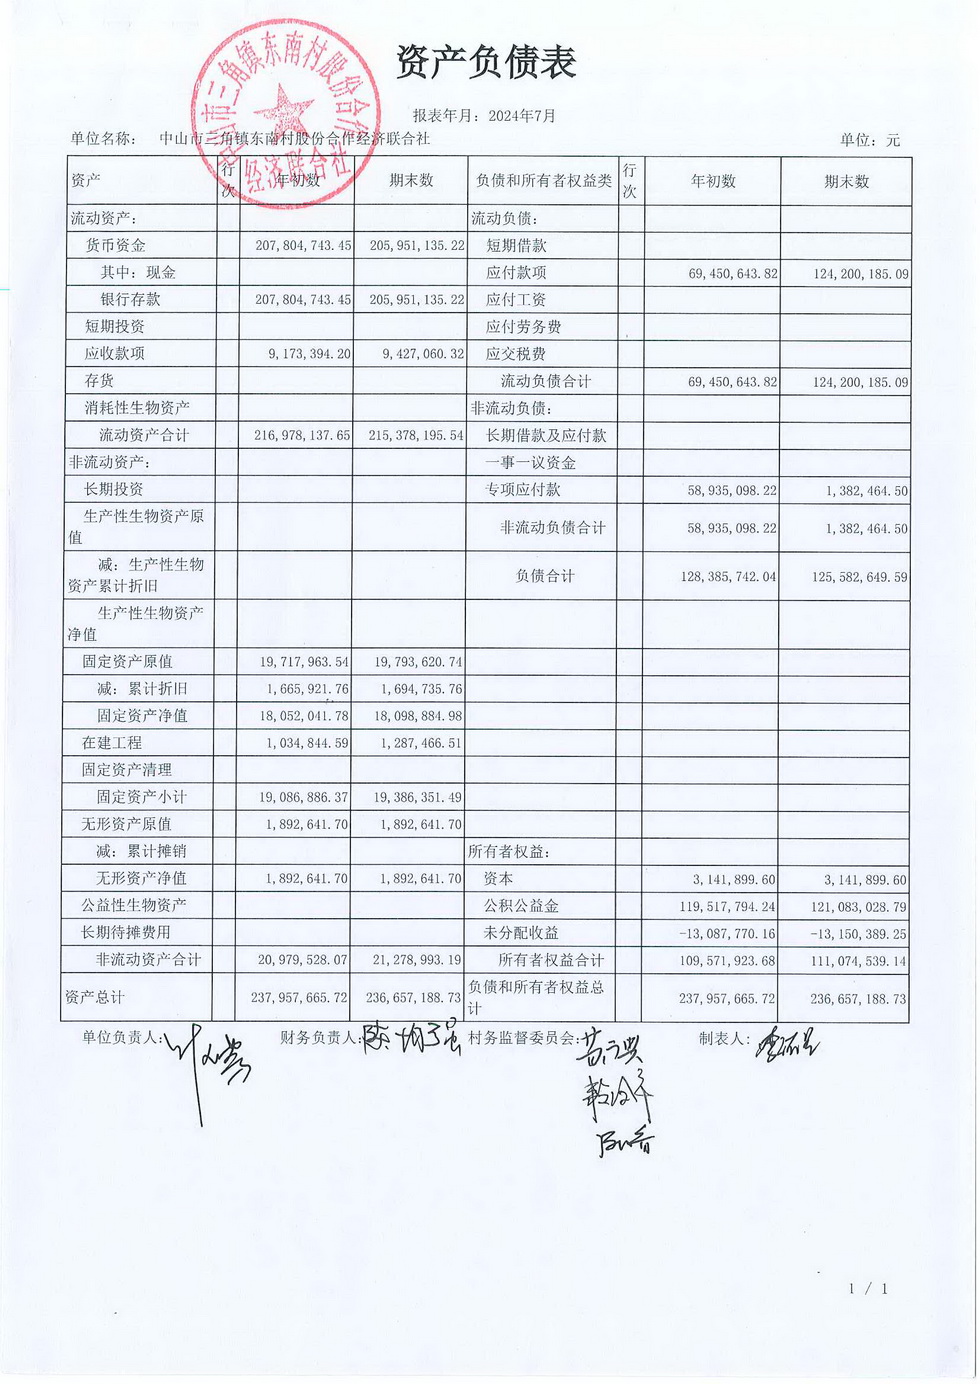 资产负债表
报表年月：2024年7月
单位名称： 中山市三角镇东南村股份合作经济联合社 单位：元
中山市三角镇东南村股份合作
经济联合社
资产 行次 年初数 期末数 负债和所有者权益类 行次 年初数 期末数
流动资产： 流动负债：
货币资金 207,804,743.45 205,951,135.22 短期借款
其中：现金 应付款项 69,450,643.82 124,200,185.09
银行存款 207,804,743.45 205,951,135.22 应付工资
短期投资 应付劳务费
应收款项 9,173,394.20 9,427,060.32 应交税费
存货 流动负债合计 69,450,643.82 124,200,185.09
消耗性生物资产 非流动负债：
流动资产合计 216,978,137.65 215,378,195.54 长期借款及应付款
非流动资产： 一事一议资金
长期投资 专项应付款 58,935,098.22 1,382,464.50
生产性生物资产原值 非流动负债合计 58,935,098.22 1,382,464.50
减：生产性生物资产累计折旧 负债合计 128,385,742.04 125,582,649.59
生产性生物资产净值
固定资产原值 19,717,963.54 19,793,620.74
减：累计折旧 1,665,921.76 1,694,735.76
固定资产净值 18,052,041.78 18,098,884.98
在建工程 1,034,844.59 1,287,466.51
固定资产清理
固定资产小计 19,086,886.37 19,386,351.49
无形资产原值 1,892,641.70 1,892,641.70
减：累计摊销 所有者权益：
无形资产净值 1,892,641.70 1,892,641.70 资本 3,141,899.60 3,141,899.60
公益性生物资产 公积公益金 119,517,794.24 121,083,028.79
长期待摊费用 未分配收益 -13,087,770.16 -13,150,389.25
非流动资产合计 20,979,528.07 21,278,993.19 所有者权益合计 109,571,923.68 111,074,539.14
资产总计 237,957,665.72 236,657,188.73 负债和所有者权益总计 237,957,665.72 236,657,188.73
单位负责人： 财务负责人： 村务监督委员会： 制表人：
1 / 1